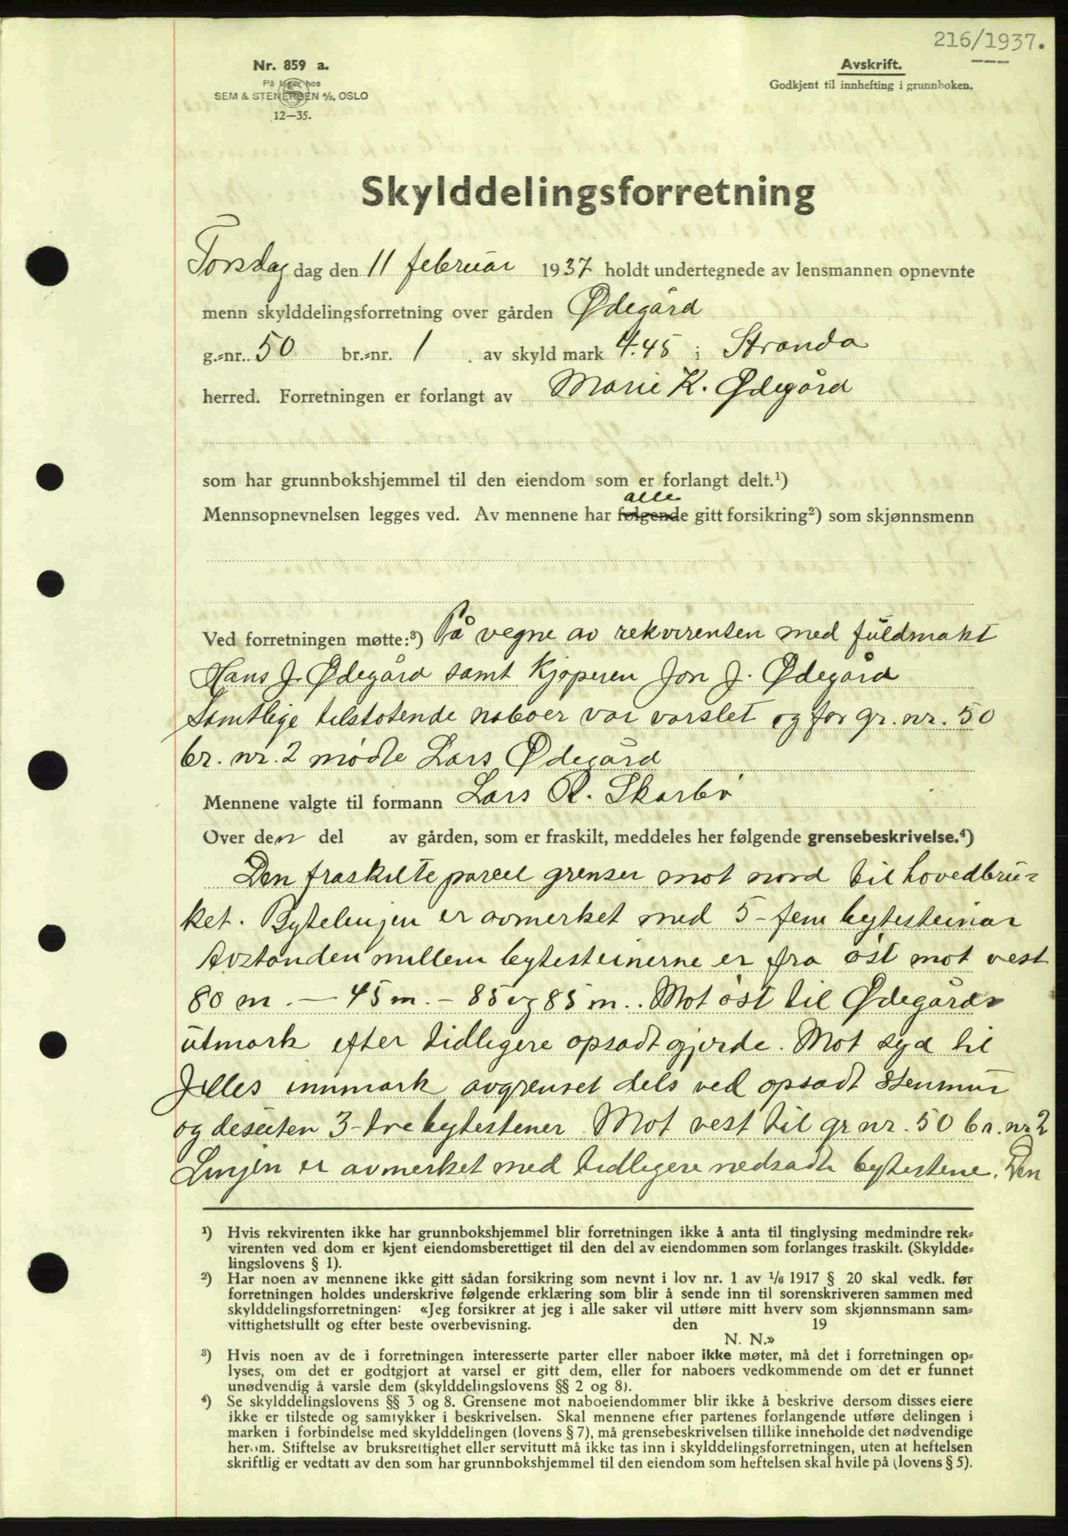 216/1937.
Nr. 859 a.
På lager hos
SEM & STENERSEN A/S, OSLO
12—35.
Avskrift.
Godkjent til innhefting i grunnboken.
Skylddelingsforretning
Torsdag dag den 11 februar 1937 holdt undertegnede av lensmannen opnevnte
menn skylddelingsforretning over gården Ødegård
g.-nr. 50 br.-nr. 1 . av skyld mark 4.45 i Stranda
herred. Forretningen er forlangt av Marie K. Ødegård
som har grunnbokshjemmel til den eiendom som er forlangt delt.¹)
alle
Mennsopnevnelsen legges ved. Av mennene har følgende gitt forsikring²) som skjønnsmenn
Ved forretningen møtte:³) På vegne av rekvirenten med fuldmakt
Hans J. Ødegård samt kjøperen Jon J. Ødegård
Samtlige tilstøtende naboer var varslet og for gr. nr. 50
br. nr. 2 mødte Lars Ødegård
Mennene valgte til formann Lars R. Skarbø
Over den del av gården, som er fraskilt, meddeles her følgende grensebeskrivelse.⁴)
Den fraskilte parcel grenser mot nord til hovedbru-
ket. Bytelinjen er avmerket med 5-fem bytesteinar
Avstanden mellem bytesteinerne er fra øst mot vest
80 m. — 45 m. – 85 og 85 m.. Mot øst til Ødegårds
utmark efter tidligere opsadt gjerde. Mot syd til
Jelles innmark avgrenset dels ved opsadt stenmur
og desuten 3-tre bytestener Mot vest til gr nr. 50 br. nr 2
Linjen er avmerket med tidligere nedsadte bytestene. Den
¹) Hvis rekvirenten ikke har grunnbokshjemmel blir forretningen ikke å anta til tinglysing medmindre rek-
virenten ved dom er kjent eiendomsberettiget til den del av eiendommen som forlanges fraskilt. (Skyldde-
lingslovens § 1).
²) Har noen av mennene ikke gitt sådan forsikring som nevnt i lov nr. 1 av ¹/₆ 1917 § 20 skal vedk. før
forretningen holdes underskrive følgende erklæring som blir å sende inn til sorenskriveren sammen med
skylddelingsforretningen: «Jeg forsikrer at jeg i alle saker vil utføre mitt hverv som skjønnsmann sam-
vittighetsfullt og efter beste overbevisning. den 19
N. N.»
³) Hvis noen av de i forretningen interesserte parter eller naboer ikke møter, må det i forretningen op-
lyses, om det er godtgjort at varsel er gitt dem, eller for naboers vedkommende om det er funnet
unødvendig å varsle dem (skylddelingslovens §§ 2 og 8).
⁴) Se skylddelingslovens §§ 3 og 8. Grensene mot naboeiendommer blir ikke å beskrive dersom disses eiere
ikke er tilstede og samtykker i beskrivelsen. Skal mennene efter partenes forlangende utføre delingen i
marken i forbindelse med skylddelingen (lovens § 7), må grensebeskrivelsen tillike inneholde det nødvendige
herom. Stiftelse av bruksrettighet eller servitutt må ikke tas inn i skylddelingsforretningen, uten at heftelsen
skriftlig er vedtatt av den som har grunnbokshjemmel til den eiendom som heftelsen skal hvile på (lovens § 5).